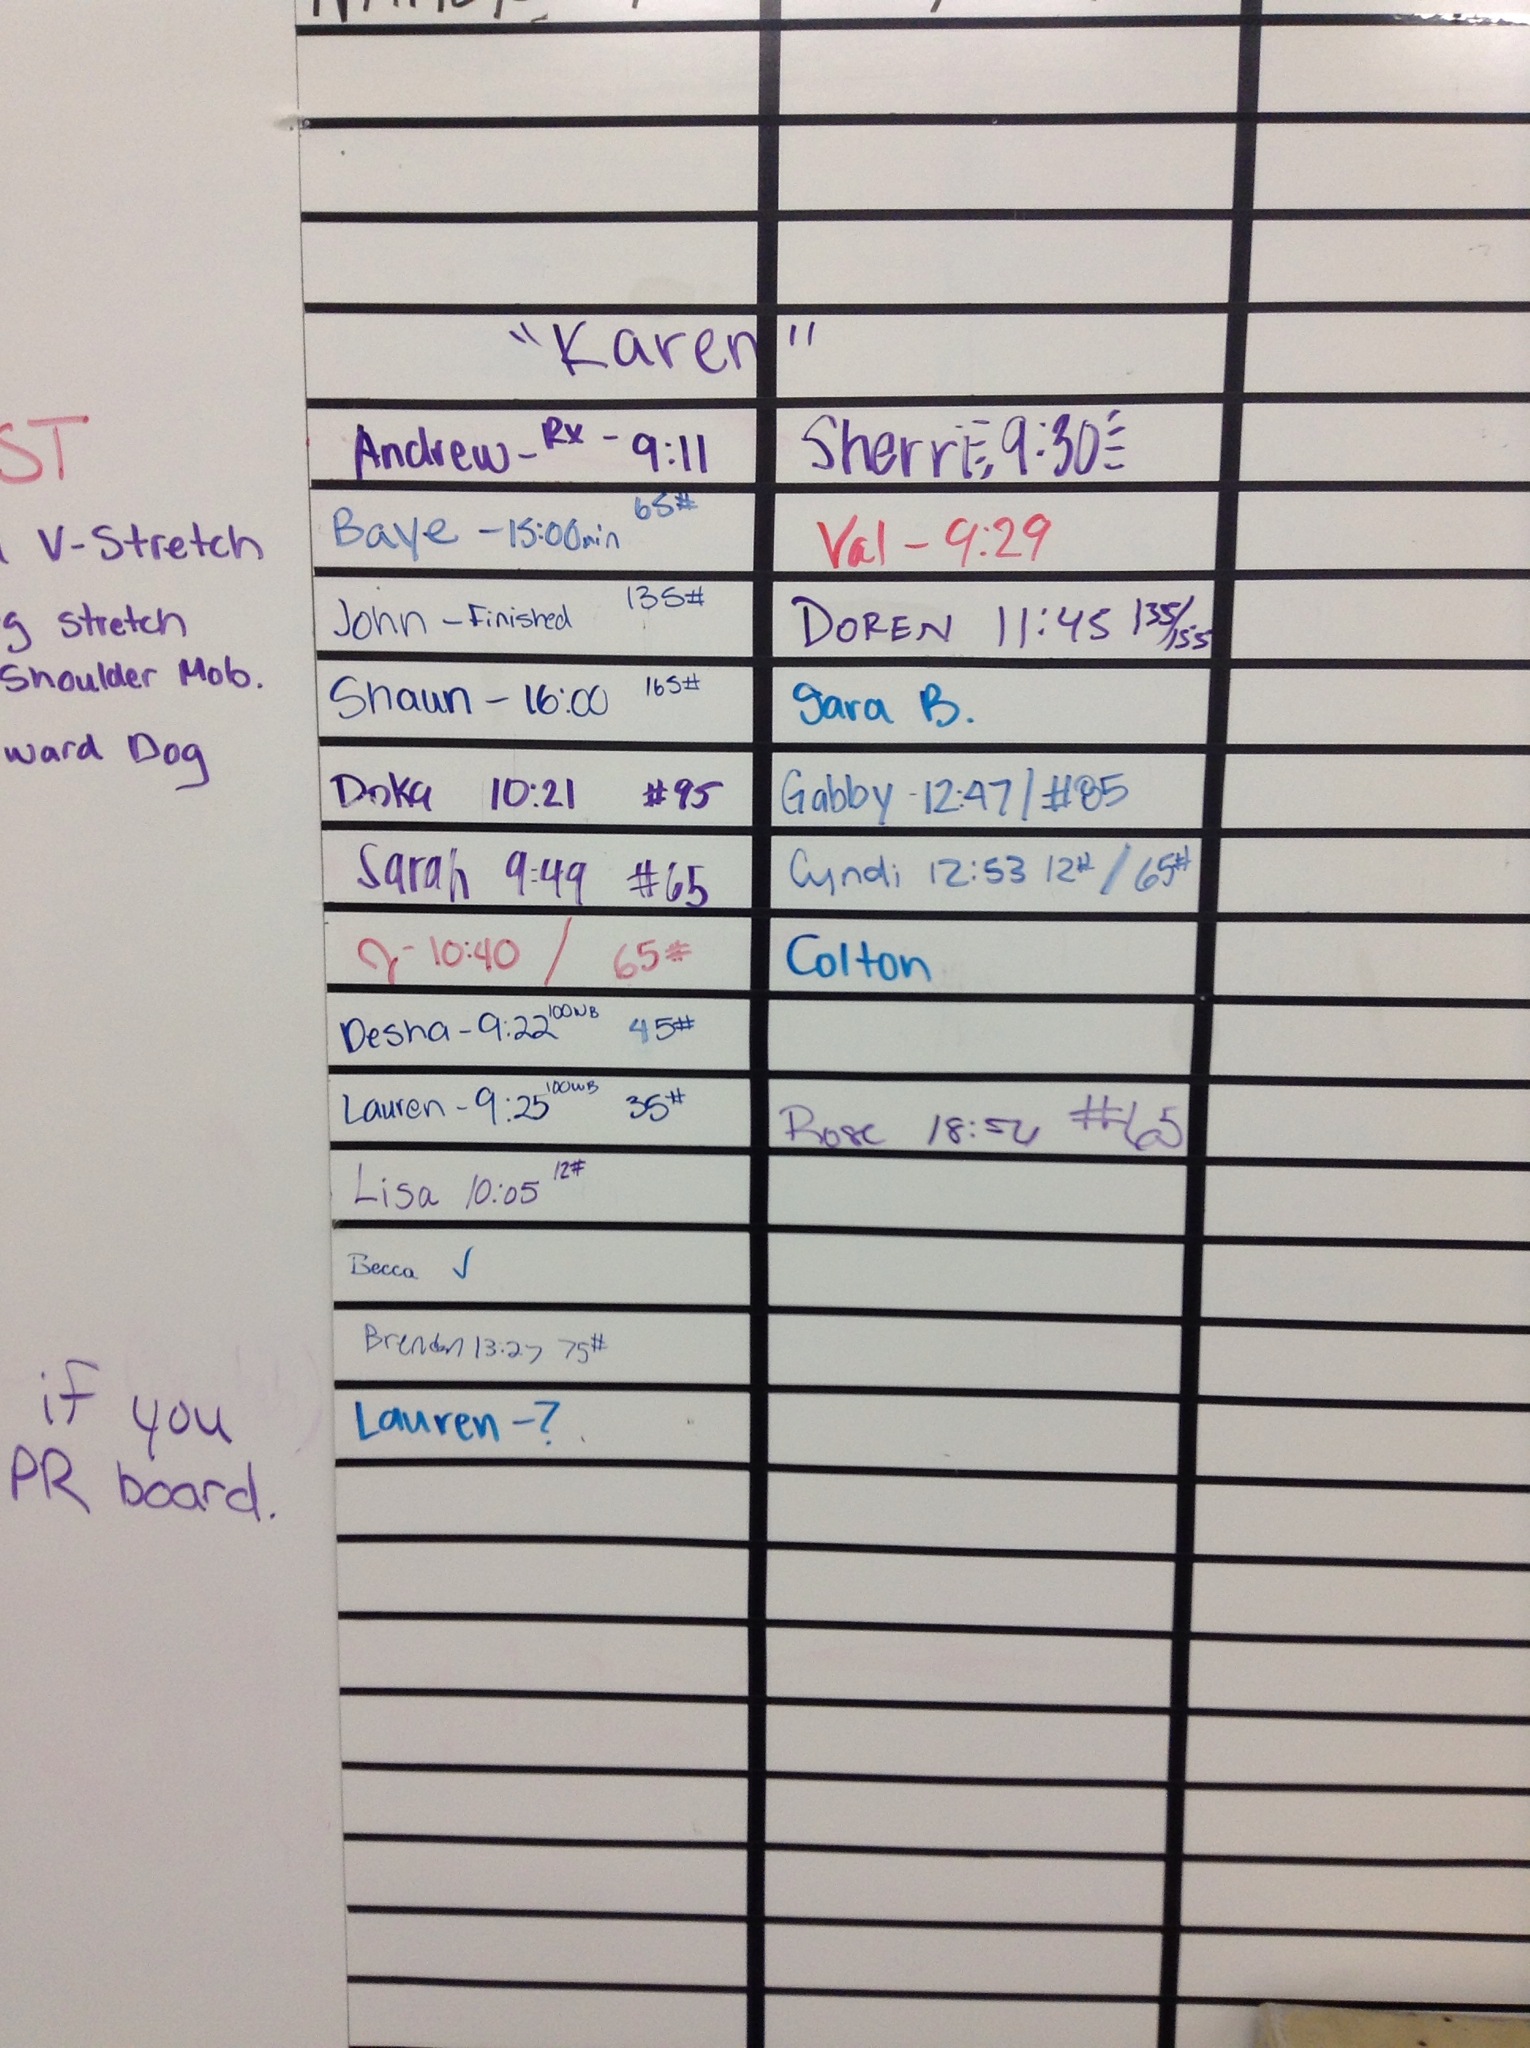 ST
V-Stretch
g stretch
Shoulder Mob.
ward Dog
if you
PR board.
"Karen"
Andrew - Rx - 9:11
Baye - 15:00min 65#
John - Finished 135#
Shaun - 16:00 165#
Doka 10:21 #95
Sarah 9:49 #65
10:40 / 65#
Desha - 9:22 100WB 45#
Lauren - 9:25 100WB 35#
Lisa 10:05 12#
Becca ✓
Brendan 13:27 75#
Lauren - ?
Sherri 9:30
Val - 9:29
DOREN 11:45 135/155
Sara B.
Gabby - 12:47 / #85
Cyndi 12:53 12# / 65#
Colton
Rose #65